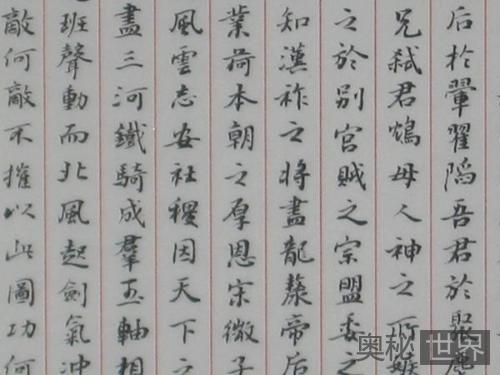 后於翬翟陷吾君於聚麀
兄弒君鴆母人神之所嫉
之於别宫賊之宗盟委之
知漢祚之將盡龍漦帝后
業荷本朝之厚恩宋微子
風雲志安社稷因天下之
盡三河鐵騎成羣玉軸相
班聲動而北風起劍氣冲
敵何敵不摧以此圖功何
奥秘世界